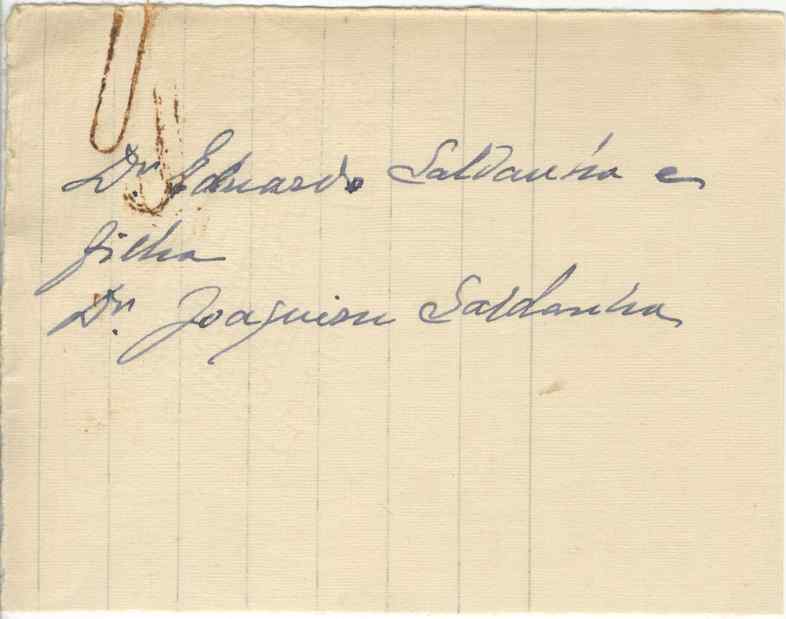 Dr. Eduardo Saldanha e
filha
Dr. Joaquim Saldanha